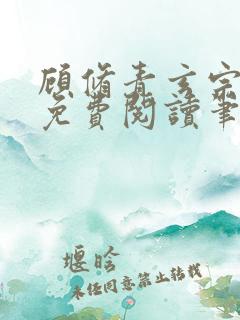 顾修青玄宗
免费阅读笔
堰晗
未任同意禁止转载